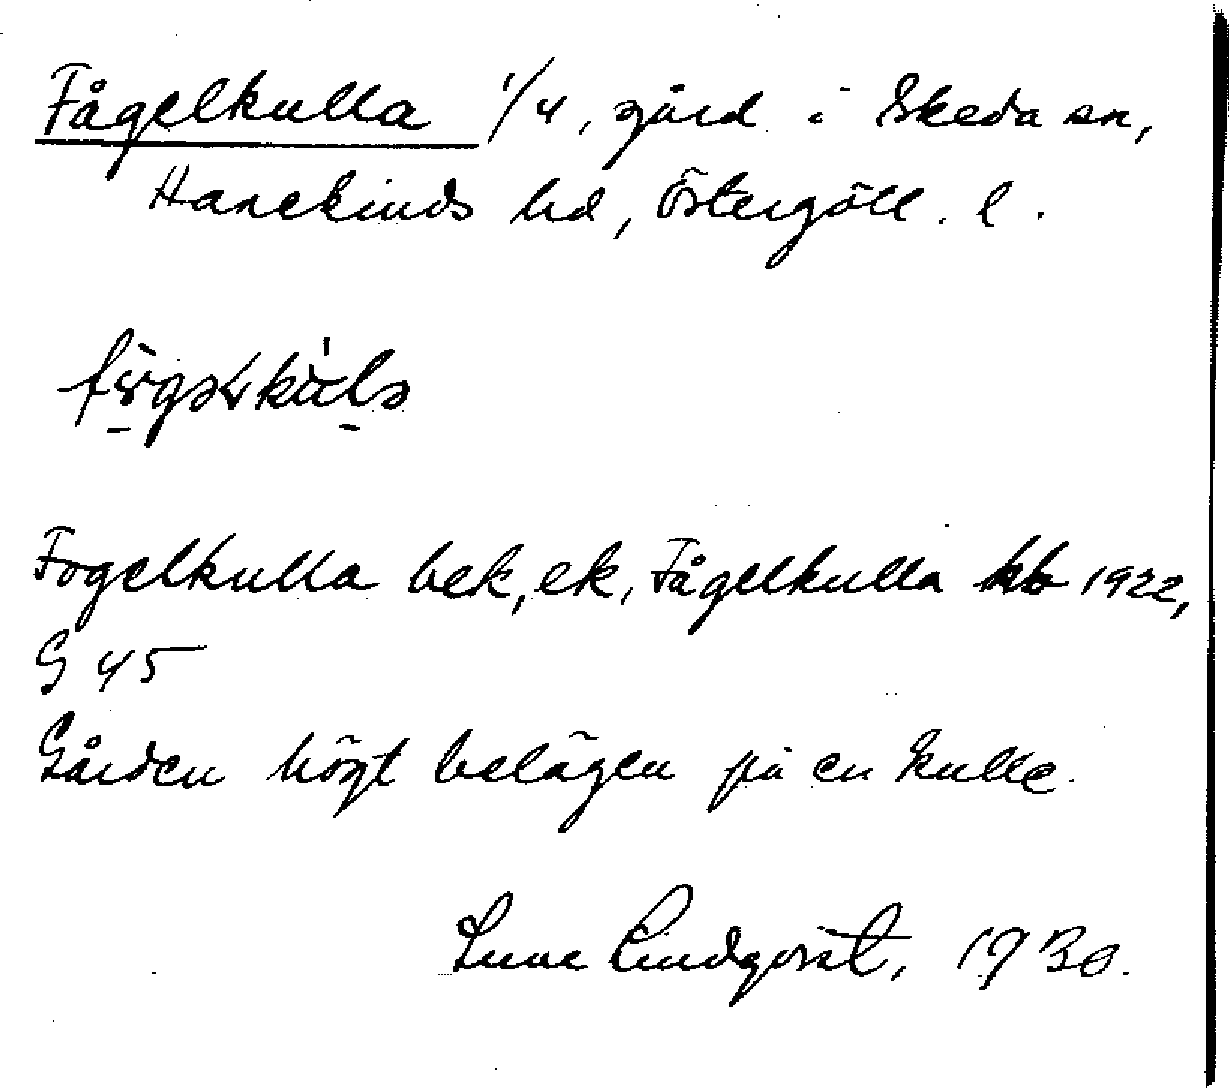 Fågelkulla 1/4, gård i Skeda sn,
Hanekinds hd, Östergötl. l.
Fogelkulla bek, ek, Fågelkulla kb 1922,
G 45
Gården högt belägen på en kulle.
Sune Lindqvist, 1930.